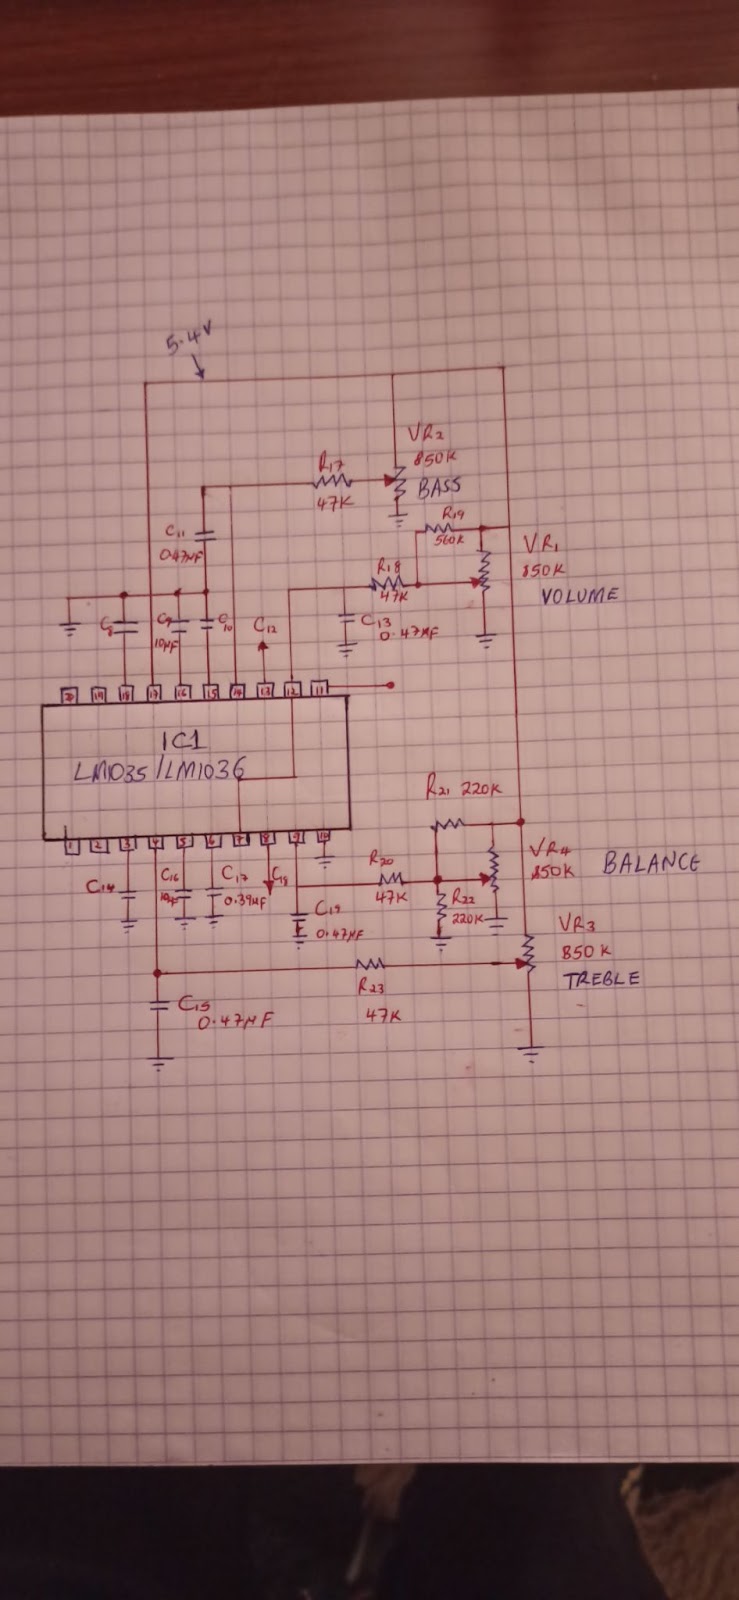 5.4V
VR2
850K
BASS
R17
47K
R19
560K
C11
0.47µF
VR1
850K
VOLUME
R18
47K
C8
C9
10µF
C10
C12
C13
0.47µF
20 19 18 17 16 15 14 13 12 11
IC1
LM1035/LM1036
1 2 3 4 5 6 7 8 9 10
R21 220K
R20
47K
VR4
850K
BALANCE
R22
220K
C14
C16
C17
0.39µF
C18
C19
0.47µF
VR3
850K
TREBLE
R23
47K
C15
0.47µF